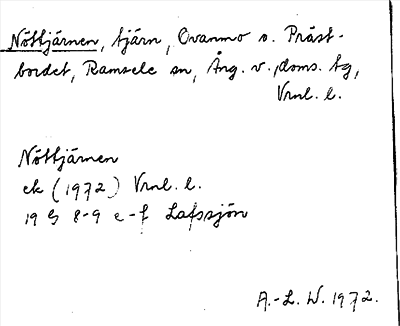 Nöttjärnen, tjärn, Ovanmo o. Präst-
bordet, Ramsele sn, Ång. v., doms. tg,
Vrnl. l.
Nöttjärnen
ek (1972) Vrnl. l.
19 G 8-9 e-f Lafssjön
A.-L. W. 1972.